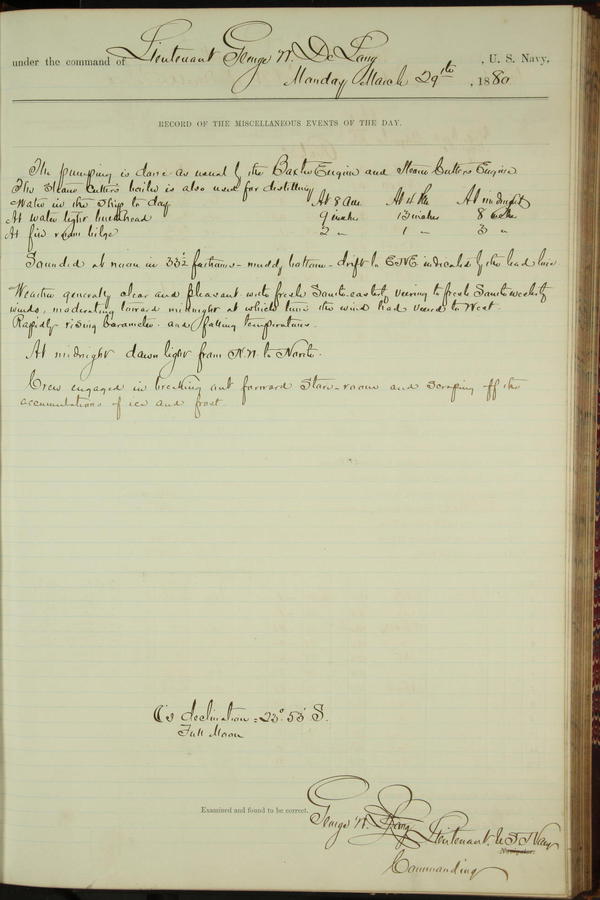 under the command of Lieutenant George W. De Long, U. S. Navy,
Monday March 29th, 1880
RECORD OF THE MISCELLANEOUS EVENTS OF THE DAY.
The pumping is done as usual by the Baxter Engine and Steam Cutters Engine
The Steam Cutters boiler is also used for distilling
Water in the Ship to day At 8 am At 4 Pm At midnight
At water tight bulkhead 9 inches 13 inches 8 inches
At fire room bilge 2 " 1 " 3 "
Sounded at noon in 33½ fathoms - muddy bottom - drift to ESE indicated by the lead line
Weather generally clear and pleasant with fresh South-easterly veering to fresh South westerly
winds, moderating toward midnight at which time the wind had veered to West.
Rapidly rising barometer and falling temperature.
At midnight dawn light from N.W. to North.
Crew engaged in breaking out forward Store-room and scraping off the
accumulations of ice and frost.
☾'s declination = 23° 53' S.
Full Moon
Examined and found to be correct.
George W. De Long Lieutenant U S Navy
Navigator.
Commanding